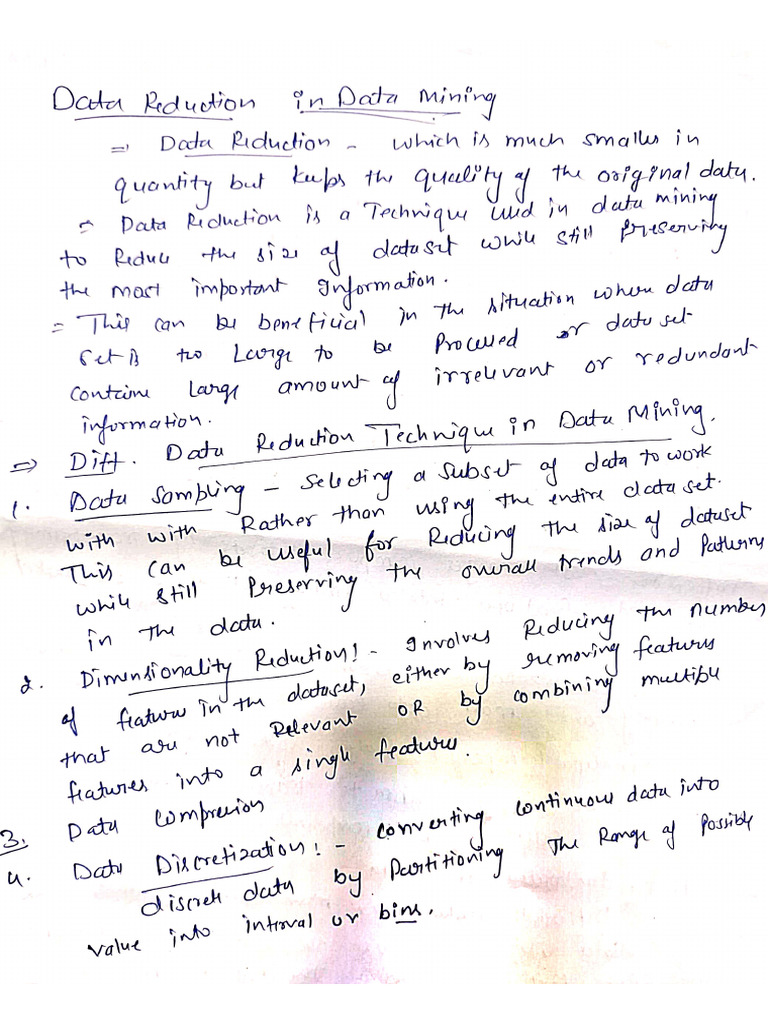 Data Reduction in Data Mining
⇒ Data Reduction - which is much smaller in
quantity but keeps the quality of the original data.
⇒ Data Reduction is a Technique used in data mining
to Reduce the size of dataset while still preserving
the most important Information.
= This can be beneficial in the situation where data
set is too Large to be Processed or data set
contains large amount of irrelevant or redundant
information.
⇒ Diff. Data Reduction Technique in Data Mining.
1. Data Sampling - Selecting a subset of data to work
with with Rather than using the entire data set.
This can be useful for Reducing the size of dataset
while still Preserving the overall trends and Patterns
in the data.
2. Dimensionality Reduction:- Involves Reducing the number
of feature in the dataset, either by removing features
that are not Relevant OR by combining multiple
features into a single features.
3. Data Compression
4. Data Discretization:- Converting continuous data into
discrete data by Partitioning The Range of Possible
value into interval or bins.